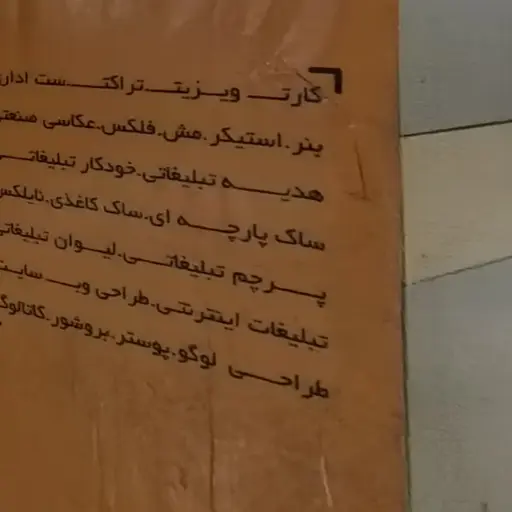 کارت ویزیت.تراکت.ست اداری
بنر.استیکر.مش.فلکس.عکاسی صنعتی
هدیه تبلیغاتی.خودکار تبلیغاتی
ساک پارچه ای.ساک کاغذی.نایلکس
پرچم تبلیغاتی.لیوان تبلیغاتی
تبلیغات اینترنتی.طراحی وب سایت
طراحی لوگو.پوستر.بروشور.کاتالوگ